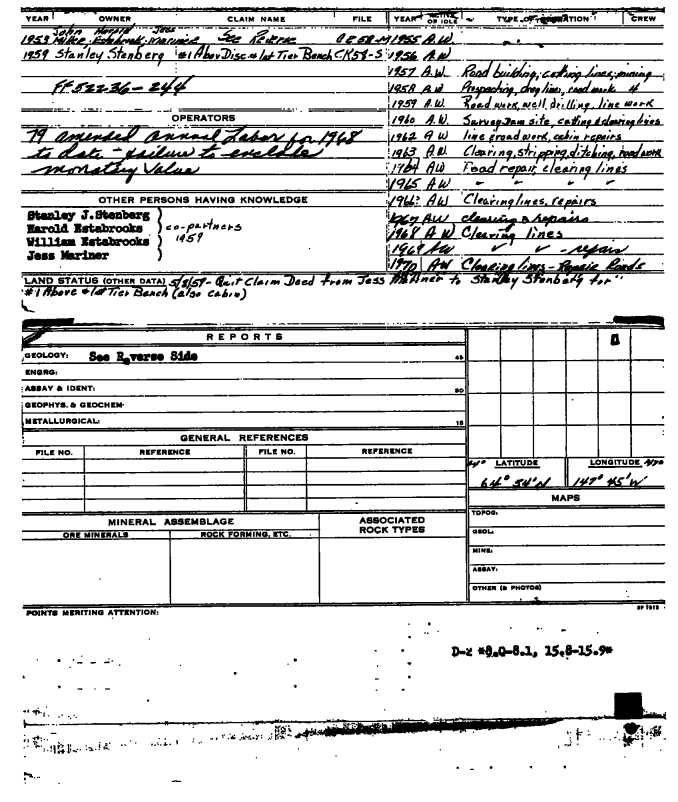 YEAR OWNER CLAIM NAME FILE YEAR ACTIVE OR IDLE TYPE OF OPERATION CREW
John Harold Jess
1953 Mike Estabrook-Mariner See Reverse 1955 A.W
1959 Stanley Stenberg #1 Above Disc #1st Tier Bench CK59-S 1956 A.W
1957 A.W. Road building, cutting lines, mining
FF52236-244 1958 A.W. Prospecting, drag lines, road work 4
1959 A.W. Road work, well drilling, line work
OPERATORS 1960 A.W. Survey dam site, cutting & clearing lines
79 amended annual Labor for 1968 1962 A W line & road work, cabin repairs
to date - failure to enclose 1963 A.W. Clearing, stripping, ditching, road work
monetary value 1964 AW Road repair, clearing lines
1965 AW " " " "
OTHER PERSONS HAVING KNOWLEDGE 1966 AW Clearing lines, repairs
Stanley J. Stenberg 1967 AW clearing & repairs
Harold Estabrooks co-partners 1968 A W Clearing lines
William Estabrooks 1959 1969 AW ✓ ✓ - repair
Jess Mariner 1970 AW Clearing lines - Repair Roads
LAND STATUS (OTHER DATA) 5/8/59 - Quit Claim Deed from Jess Mariner to Stanley Stenberg for "
#1 Above #1st Tier Bench (also cabin)
REPORTS
GEOLOGY: See Reverse Side 45
ENGRG:
ASSAY & IDENT: 30
GEOPHYS. & GEOCHEM:
METALLURGICAL: 15
GENERAL REFERENCES
FILE NO. REFERENCE FILE NO. REFERENCE
LATITUDE LONGITUDE
64° 54'N 147° 45'W
MAPS
TOPOG:
MINERAL ASSEMBLAGE ASSOCIATED ROCK TYPES
ORE MINERALS ROCK FORMING, ETC.
GEOL:
MINE:
ASSAY:
OTHER (& PHOTOS)
POINTS MERITING ATTENTION:
D-2 *8.0-8.1, 15.8-15.9*